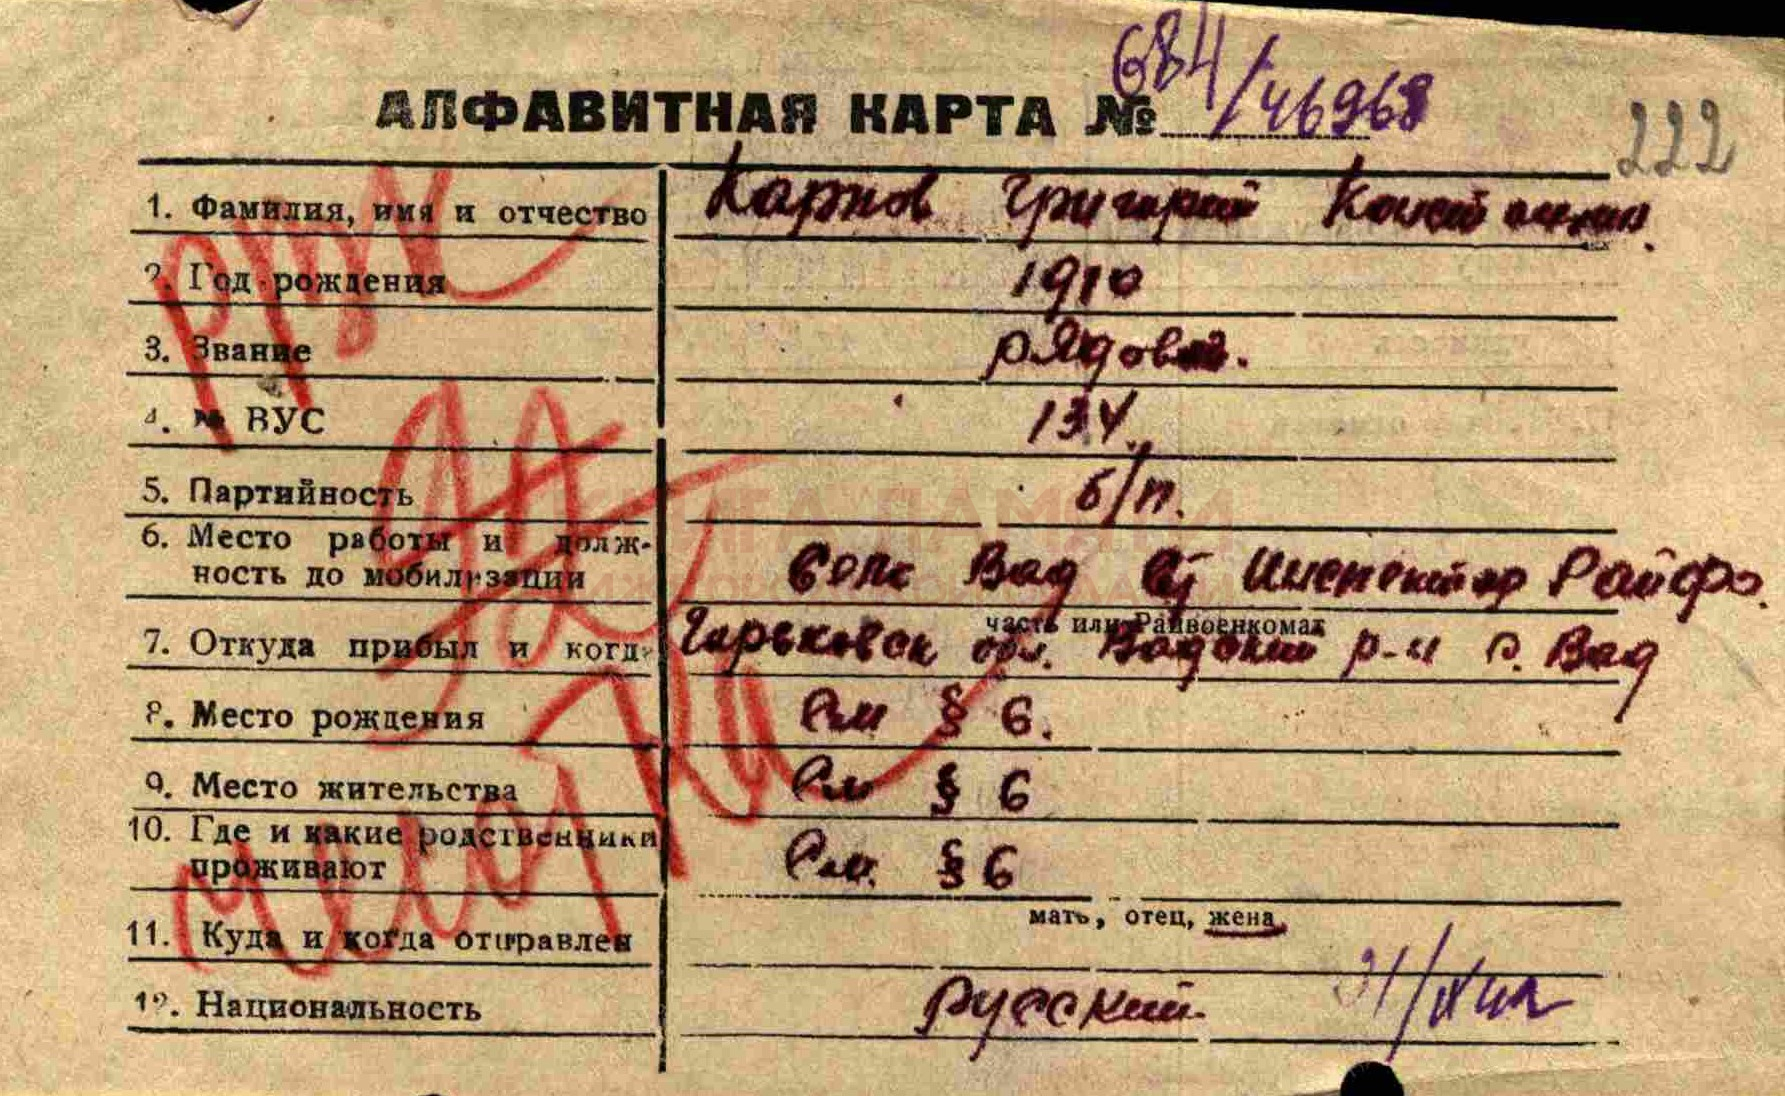 684/46968
АЛФАВИТНАЯ КАРТА №
222
1. Фамилия, имя и отчество Карпов Григорий
2. Год рождения 1910
3. Звание рядовой.
4. № ВУС 134.
5. Партийность б/п.
КНИГА ПАМЯТИ
6. Место работы и долж-
ность до мобилизации село Вад Ст Инспектор Райфо.
часть или Райвоенкомат
7. Откуда прибыл и когда Горьковск обл. Вадский р-н с. Вад
8. Место рождения См § 6.
9. Место жительства См § 6
10. Где и какие родственники
проживают См. § 6
мать, отец, жена
11. Куда и когда отправлен
12. Национальность русский